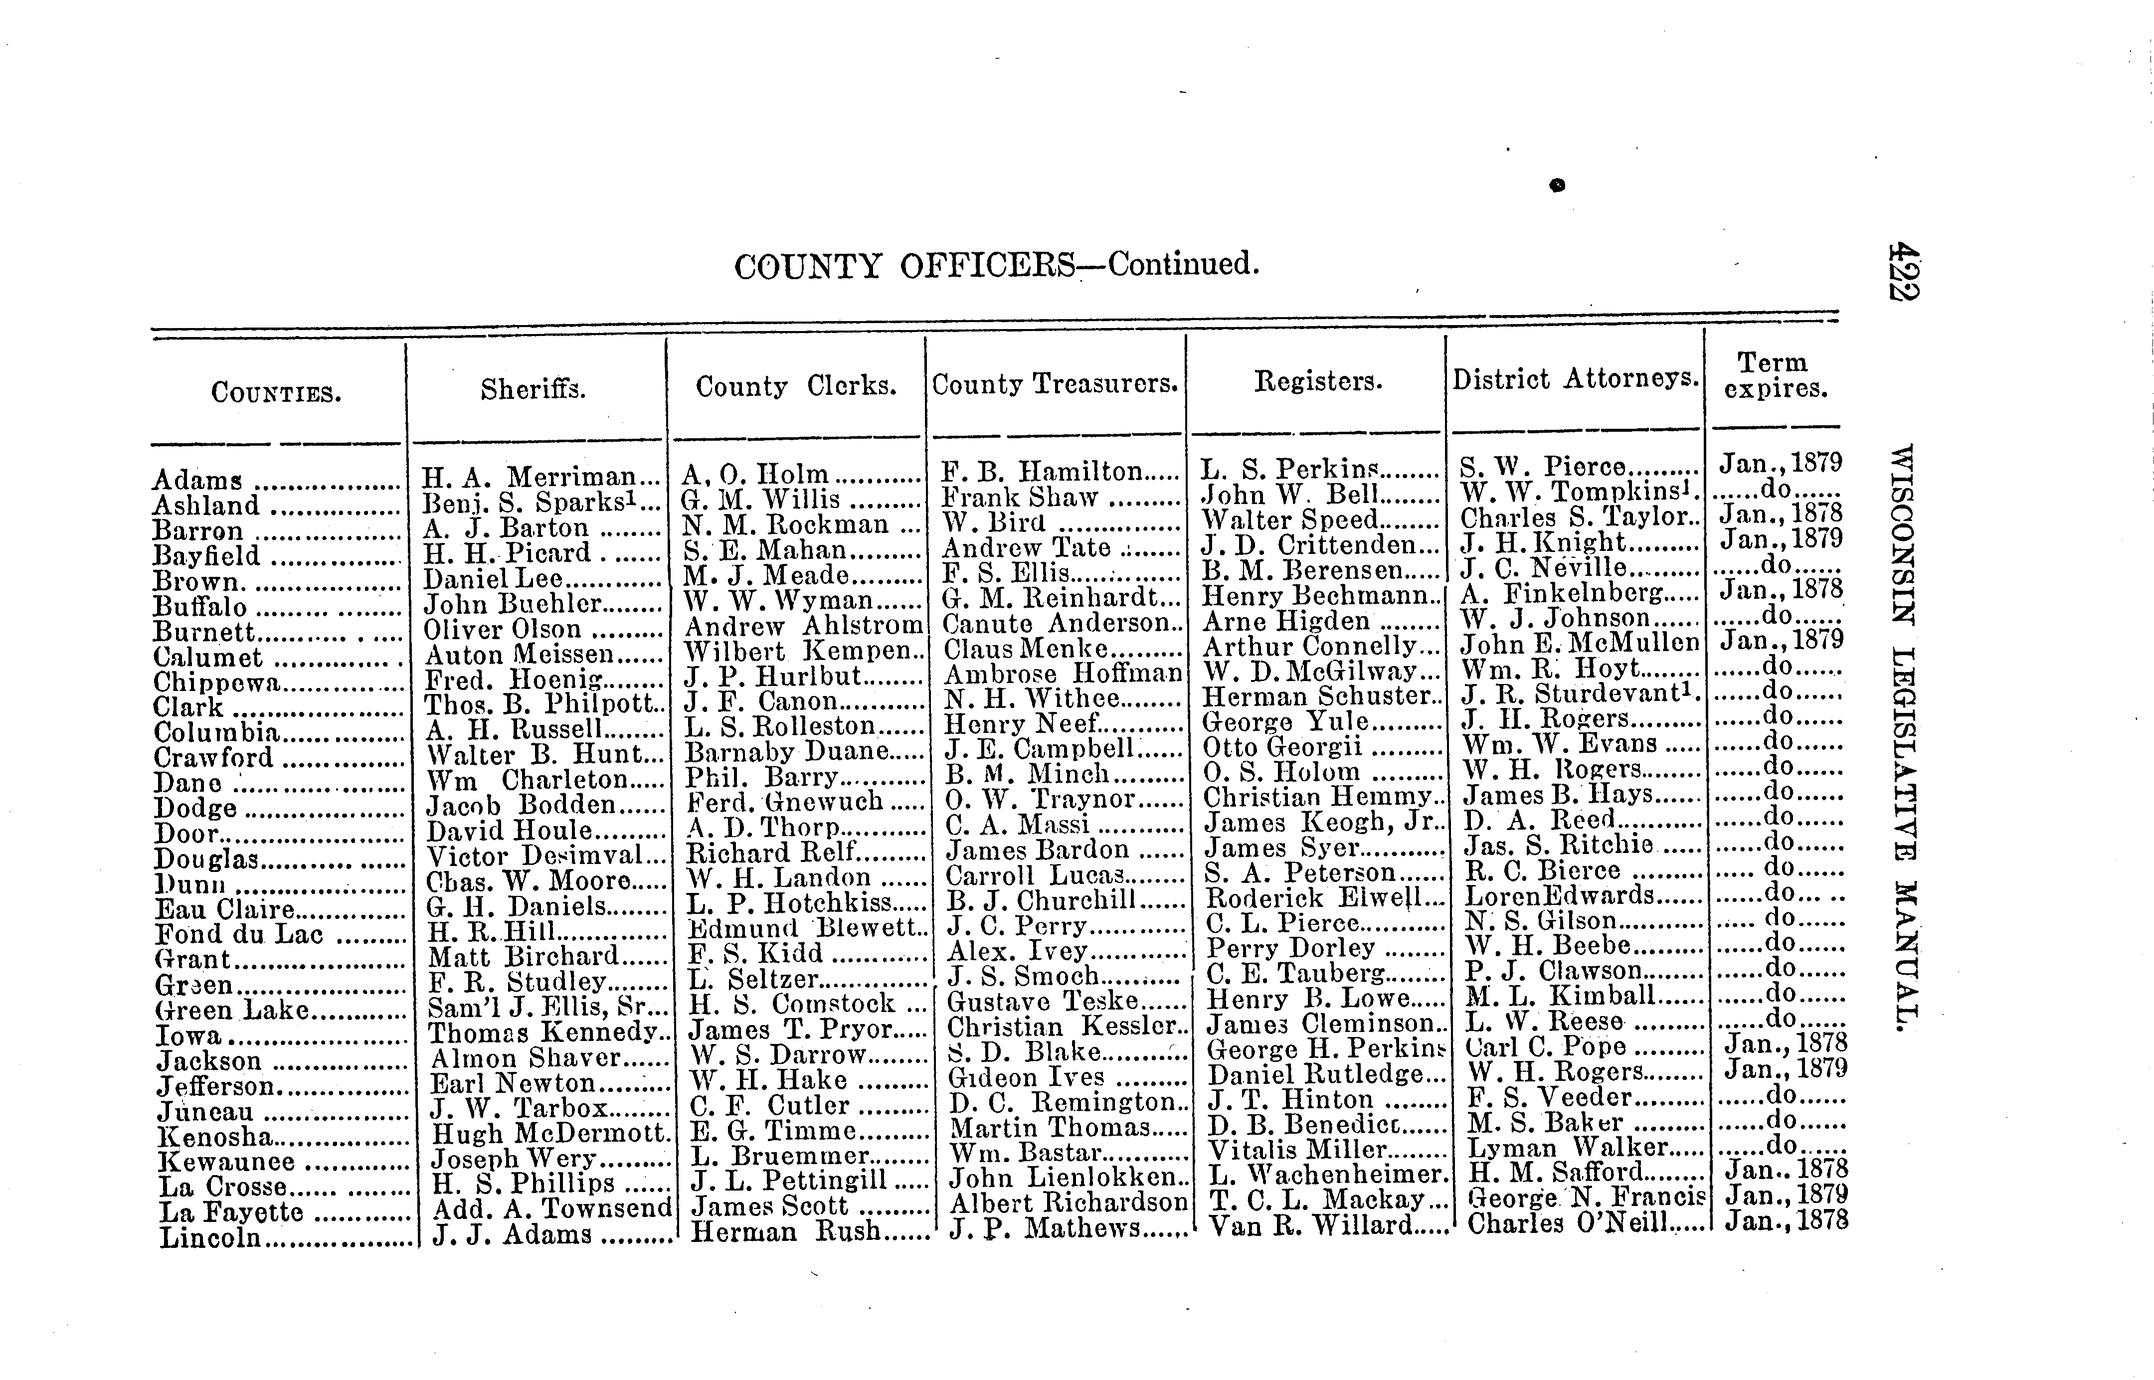 COUNTY OFFICERS—Continued.
422
WISCONSIN LEGISLATIVE MANUAL.
COUNTIES. Sheriffs. County Clerks. County Treasurers. Registers. District Attorneys. Term expires.
Adams .................. H. A. Merriman... A, O. Holm ........... F. B. Hamilton..... L. S. Perkins........ S. W. Pierce......... Jan., 1879
Ashland ................ Benj. S. Sparks¹... G. M. Willis ......... Frank Shaw ......... John W. Bell........ W. W. Tompkins¹. ......do......
Barron .................. A. J. Barton ........ N. M. Rockman ... W. Bird ............... Walter Speed........ Charles S. Taylor.. Jan., 1878
Bayfield ................. H. H. Picard ........ S. E. Mahan......... Andrew Tate ........ J. D. Crittenden... J. H. Knight......... Jan., 1879
Brown................... Daniel Lee............ M. J. Meade......... F. S. Ellis.............. B. M. Berensen..... J. C. Neville......... ......do......
Buffalo .................. John Buehler........ W. W. Wyman...... G. M. Reinhardt... Henry Bechmann.. A. Finkelnberg..... Jan., 1878
Burnett.................. Oliver Olson ......... Andrew Ahlstrom Canute Anderson.. Arne Higden ........ W. J. Johnson...... ......do......
Calumet ............... Auton Meissen...... Wilbert Kempen.. Claus Menke......... Arthur Connelly... John E. McMullen Jan., 1879
Chippewa............... Fred. Hoenig........ J. P. Hurlbut........ Ambrose Hoffman W. D. McGilway... Wm. R. Hoyt........ ......do......
Clark ..................... Thos. B. Philpott.. J. F. Canon........... N. H. Withee........ Herman Schuster.. J. R. Sturdevant¹. ......do......
Columbia............... A. H. Russell........ L. S. Rolleston...... Henry Neef........... George Yule......... J. H. Rogers......... ......do......
Crawford ............... Walter B. Hunt... Barnaby Duane..... J. E. Campbell...... Otto Georgii ......... Wm. W. Evans ..... ......do......
Dane ..................... Wm Charleton..... Phil. Barry........... B. M. Minch......... O. S. Holom ......... W. H. Rogers........ ......do......
Dodge .................... Jacob Bodden...... Ferd. Gnewuch ..... O. W. Traynor...... Christian Hemmy.. James B. Hays...... ......do......
Door....................... David Houle......... A. D. Thorp........... C. A. Massi ........... James Keogh, Jr.. D. A. Reed........... ......do......
Douglas.................. Victor Desimval... Richard Relf......... James Bardon ...... James Syer........... Jas. S. Ritchie ..... ......do......
Dunn ..................... Chas. W. Moore..... W. H. Landon ...... Carroll Lucas........ S. A. Peterson...... R. C. Bierce ......... ..... do......
Eau Claire.............. G. H. Daniels........ L. P. Hotchkiss..... B. J. Churchill...... Roderick Elwell... LorenEdwards...... ......do... ..
Fond du Lac ......... H. R. Hill.............. Edmund Blewett.. J. C. Perry............ C. L. Pierce........... N. S. Gilson.......... ..... do......
Grant..................... Matt Birchard...... F. S. Kidd ............ Alex. Ivey............ Perry Dorley ........ W. H. Beebe......... ......do......
Green..................... F. R. Studley........ L. Seltzer.............. J. S. Smoch.......... C. E. Tauberg........ P. J. Clawson........ ......do......
Green Lake............ Sam'l J. Ellis, Sr... H. S. Comstock ... Gustave Teske...... Henry B. Lowe..... M. L. Kimball...... ......do......
Iowa...................... Thomas Kennedy.. James T. Pryor..... Christian Kessler.. James Cleminson.. L. W. Reese ......... ......do......
Jackson ................. Almon Shaver...... W. S. Darrow........ S. D. Blake........... George H. Perkins Carl C. Pope ......... Jan., 1878
Jefferson................ Earl Newton......... W. H. Hake ......... Gideon Ives ......... Daniel Rutledge... W. H. Rogers........ Jan., 1879
Juneau .................. J. W. Tarbox........ C. F. Cutler ......... D. C. Remington.. J. T. Hinton ........ F. S. Veeder......... ......do......
Kenosha................. Hugh McDermott. E. G. Timme......... Martin Thomas..... D. B. Benedict...... M. S. Baker ......... ......do......
Kewaunee ............. Joseph Wery......... L. Bruemmer........ Wm. Bastar........... Vitalis Miller........ Lyman Walker..... ......do......
La Crosse............... H. S. Phillips ...... J. L. Pettingill ..... John Lienlokken.. L. Wachenheimer. H. M. Safford........ Jan.. 1878
La Fayette ............ Add. A. Townsend James Scott ......... Albert Richardson T. C. L. Mackay... George N. Francis Jan., 1879
Lincoln.................. J. J. Adams ......... Herman Rush...... J. P. Mathews...... Van R. Willard..... Charles O'Neill..... Jan., 1878